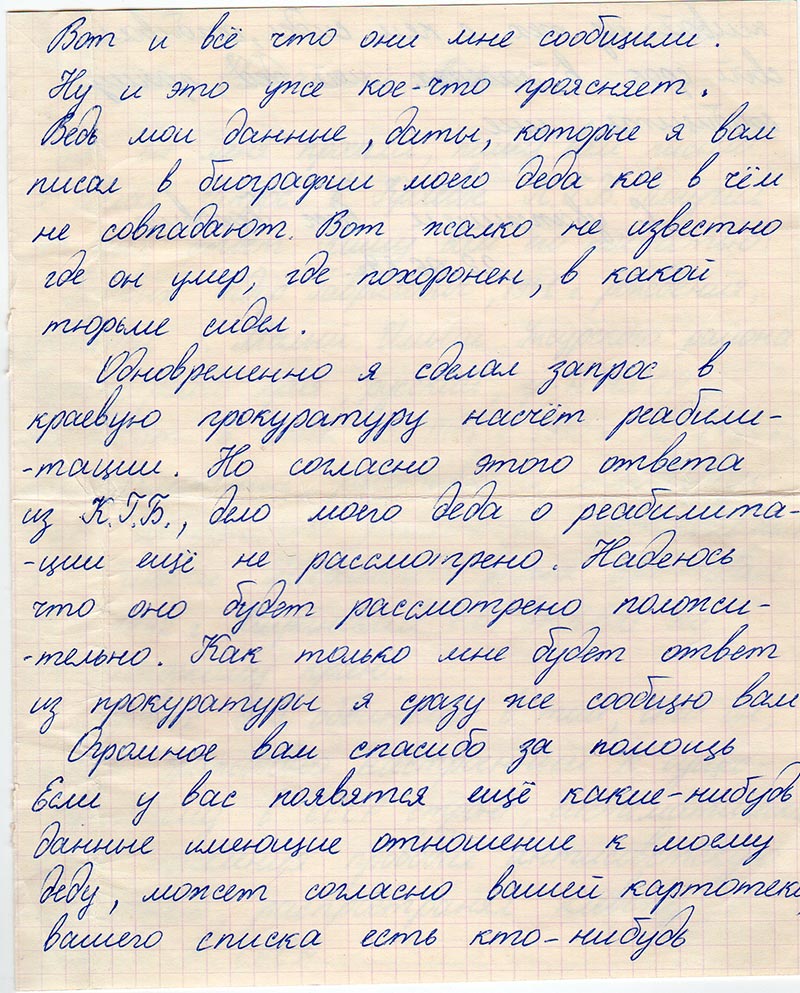 Вот и всё что они мне сообщили.
Ну и это уже кое-что проясняет.
Ведь мои данные, даты, которые я вам
писал в биографии моего деда кое в чём
не совпадают. Вот жалко не известно
где он умер, где похоронен, в какой
тюрьме сидел.
Одновременно я сделал запрос в
краевую прокуратуру насчёт реабили-
-тации. Но согласно этого ответа
из К.Г.Б., дело моего деда о реабилита-
-ции ещё не рассмотрено. Надеюсь
что оно будет рассмотрено положи-
-тельно. Как только мне будет ответ
из прокуратуры я сразу же сообщю вам
Огромное вам спасибо за помощь
Если у вас появятся ещё какие-нибудь
данные имеющие отношение к моему
деду, может согласно вашей картотеке,
вашего списка есть кто-нибудь